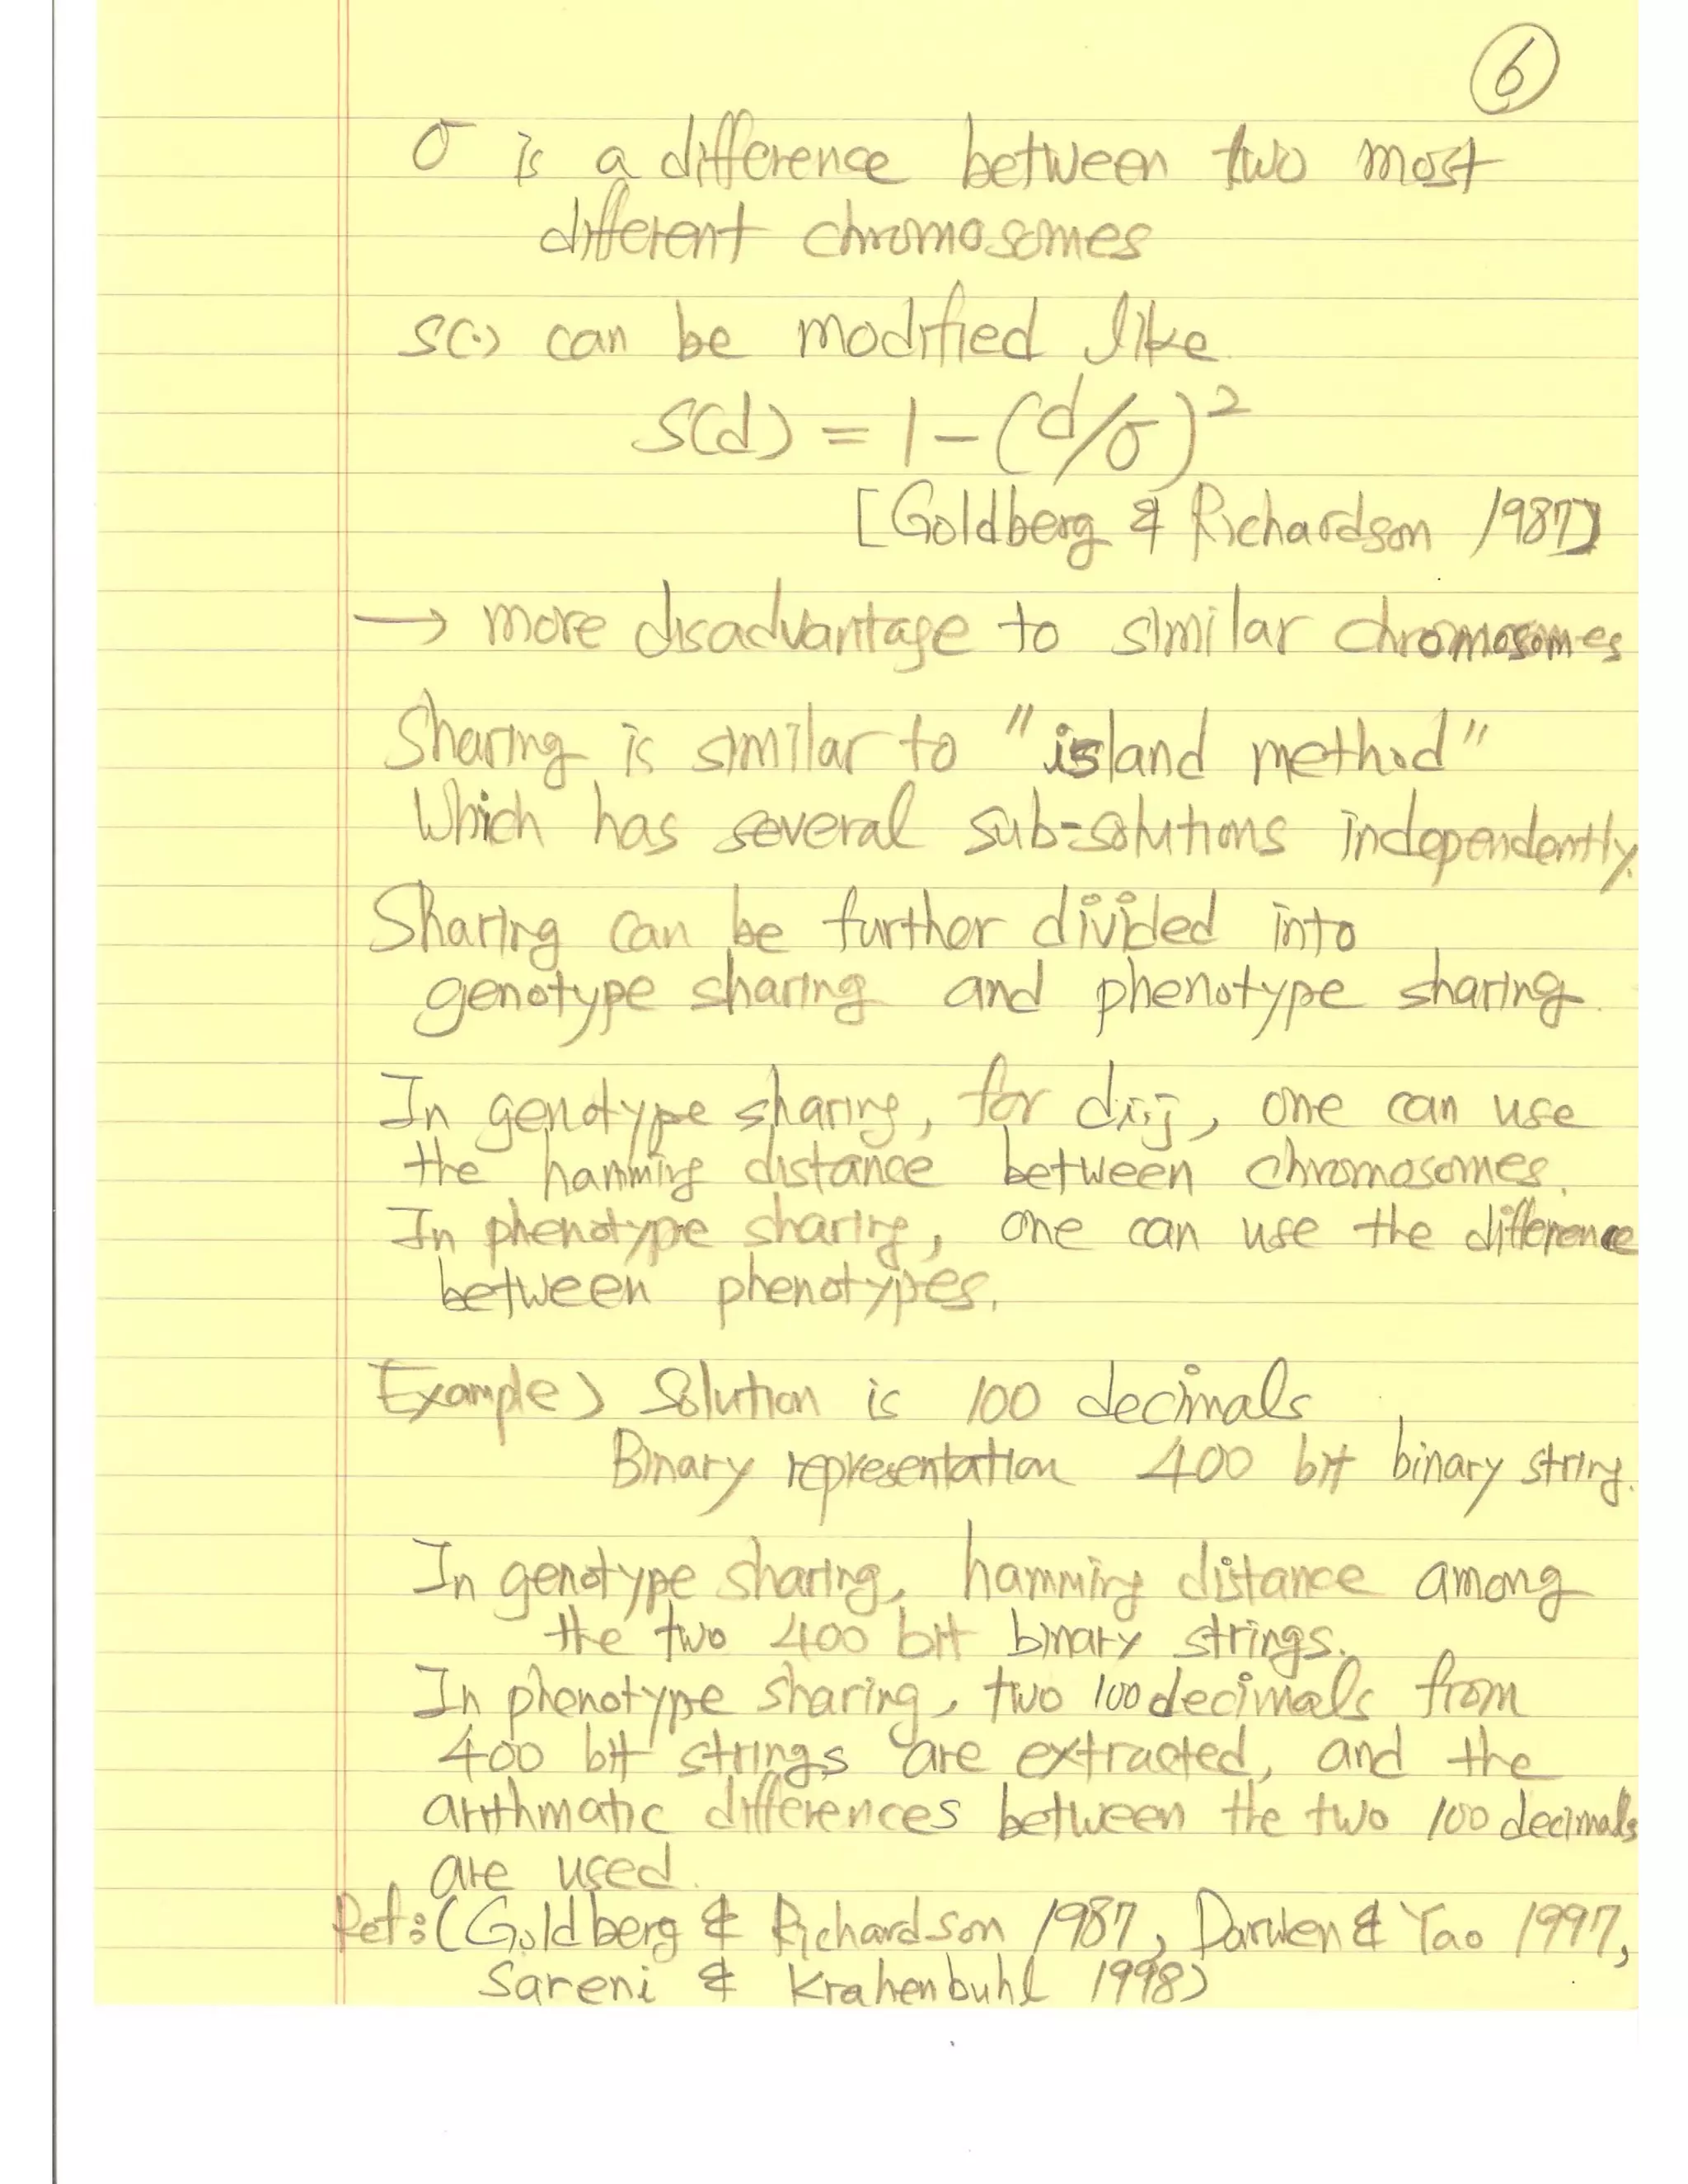 6
σ is a difference between two most
different chromosomes
S(·) can be modified like
S(d) = 1 - (d/σ)²
[Goldberg & Richardson 1987]
→ more disadvantage to similar chromosomes
Sharing is similar to "island method"
Which has several sub-solutions independently.
Sharing can be further divided into
genotype sharing and phenotype sharing.
In genotype sharing, for di,j, one can use
the hamming distance between chromosomes.
In phenotype sharing, one can use the difference
between phenotypes.
Example) Solution is 100 decimals
Binary representation 400 bit binary string.
In genotype sharing, hamming distance among
the two 400 bit binary strings.
In phenotype sharing, two 100 decimals from
400 bit strings are extracted, and the
arithmatic differences between the two 100 decimals
are used.
Ref: (Goldberg & Richardson 1987, Darwen & Yao 1997,
Sareni & Krahenbuhl 1998)